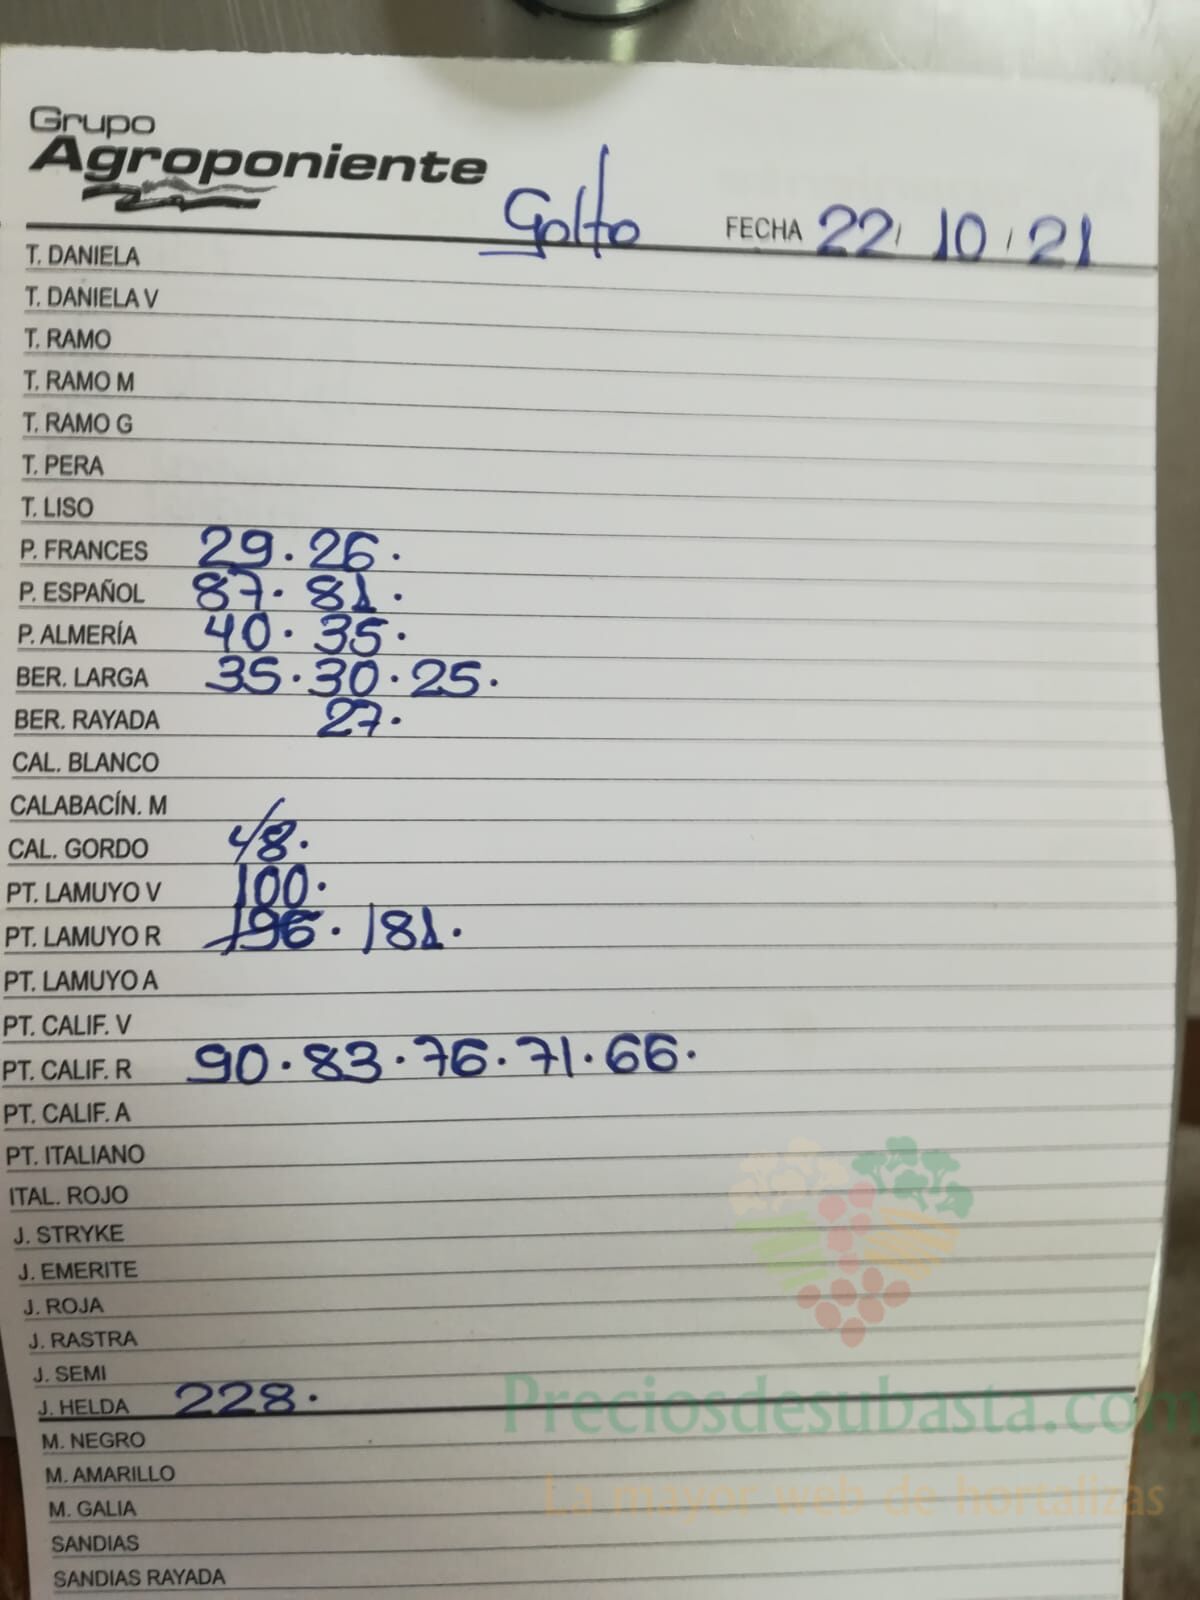 Grupo
Agroponiente
Golfo FECHA 22/ 10 / 21
T. DANIELA
T. DANIELA V
T. RAMO
T. RAMO M
T. RAMO G
T. PERA
T. LISO
P. FRANCES 29. 26.
P. ESPAÑOL 87. 81.
P. ALMERÍA 40. 35.
BER. LARGA 35. 30. 25.
BER. RAYADA 27.
CAL. BLANCO
CALABACÍN. M
CAL. GORDO 48.
PT. LAMUYO V 100.
PT. LAMUYO R 196. 181.
PT. LAMUYO A
PT. CALIF. V
PT. CALIF. R 90. 83. 76. 71. 66.
PT. CALIF. A
PT. ITALIANO
ITAL. ROJO
J. STRYKE
J. EMERITE
J. ROJA
J. RASTRA
J. SEMI
J. HELDA 228.
M. NEGRO
M. AMARILLO
M. GALIA
SANDIAS
SANDIAS RAYADA
Preciosdesubasta.com
La mayor web de hortalizas